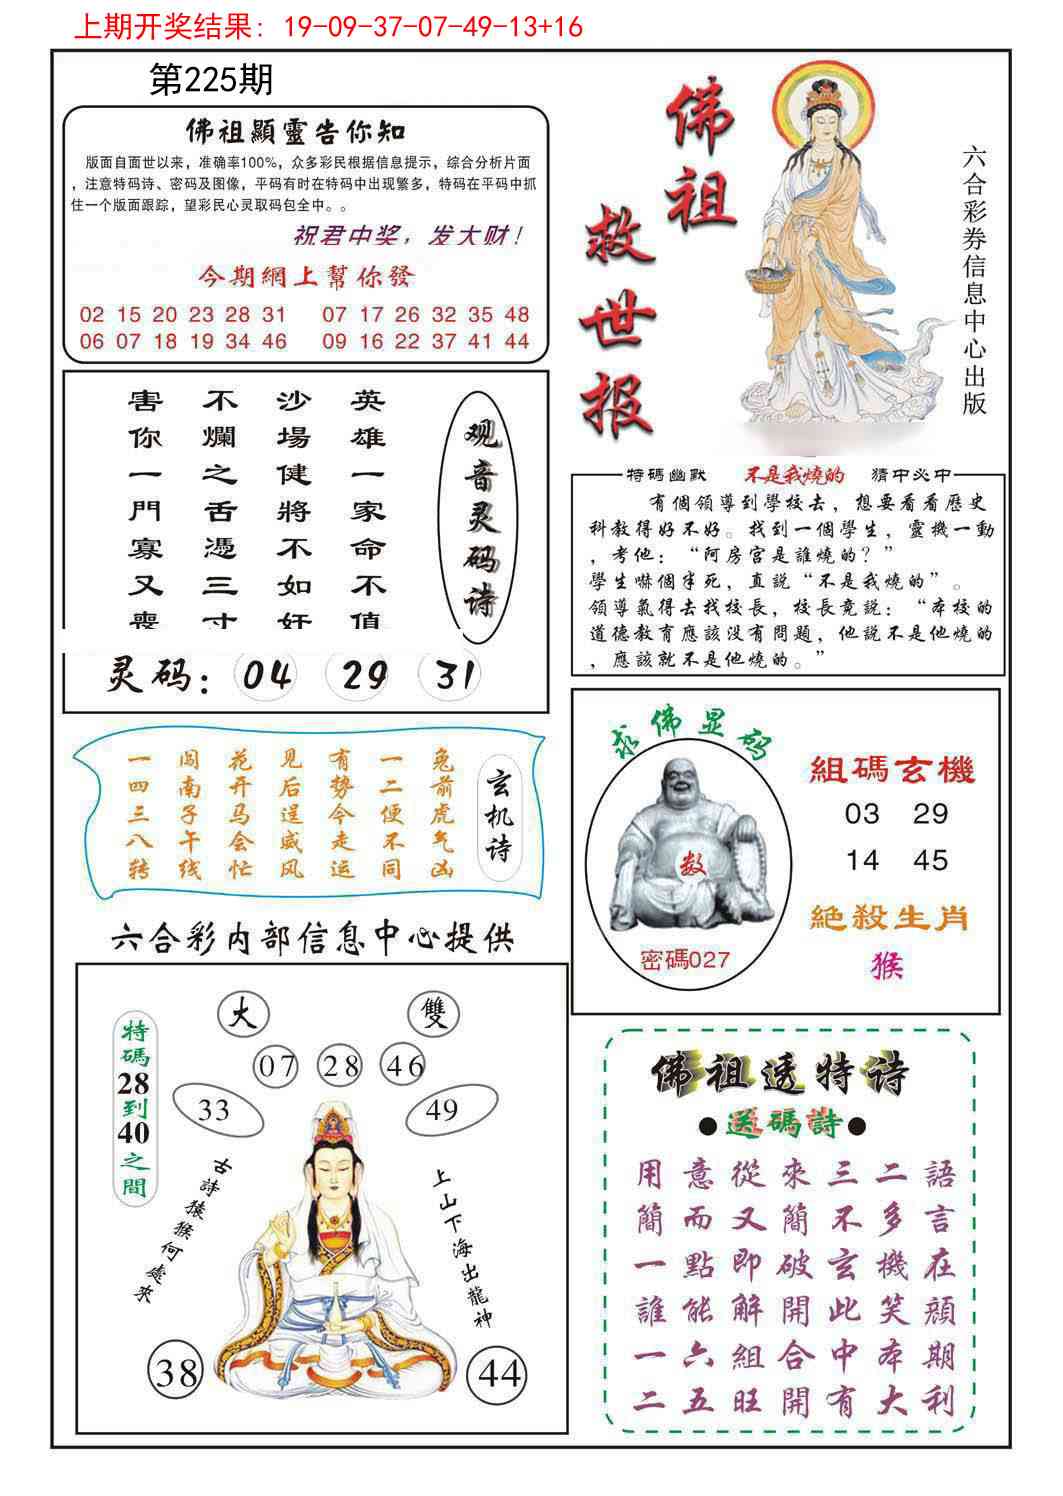 上期开奖结果：19-09-37-07-49-13+16
第225期
佛祖顯靈告你知
版面自面世以来，准确率100%，众多彩民根据信息提示，综合分析片面
，注意特码诗、密码及图像，平码有时在特码中出现繁多，特码在平码中抓
住一个版面跟踪，望彩民心灵取码包全中。。
祝君中奖，发大财！
今期網上幫你發
02 15 20 23 28 31 07 17 26 32 35 48
06 07 18 19 34 46 09 16 22 37 41 44
佛祖
救世报
六合彩券信息中心出版
观音灵码诗
英雄一家命不值
沙場健將不如奸
不爛之舌憑三寸
害你一門寡又喪
灵码：04 29 31
特碼幽默 不是我燒的 猜中必中
有個領導到學校去，想要看看歷史
科教得好不好。找到一個學生，靈機一動
，考他：“阿房宫是誰燒的？”
學生嚇個半死，直説“不是我燒的”。
領導氣得去找校長，校長竟説：“本校的
道德教育應該没有問題，他説不是他燒的
，應該就不是他燒的。”
玄机诗
兔前虎气凶
一二便不同
有势今走运
见后逞威风
花开马会忙
闯南子午线
一四三八转
六合彩内部信息中心提供
求佛显码
数
密碼027
組碼玄機
03 29
14 45
絕殺生肖
猴
特碼28到40之間
大 雙
07 28 46
33 49
古詩猿猴何處來
上山下海出龍神
38 44
佛祖透特诗
●送碼詩●
用意從來三二語
簡而又簡不多言
一點即破玄機在
誰能解開此笑顔
一六組合中本期
二五旺開有大利